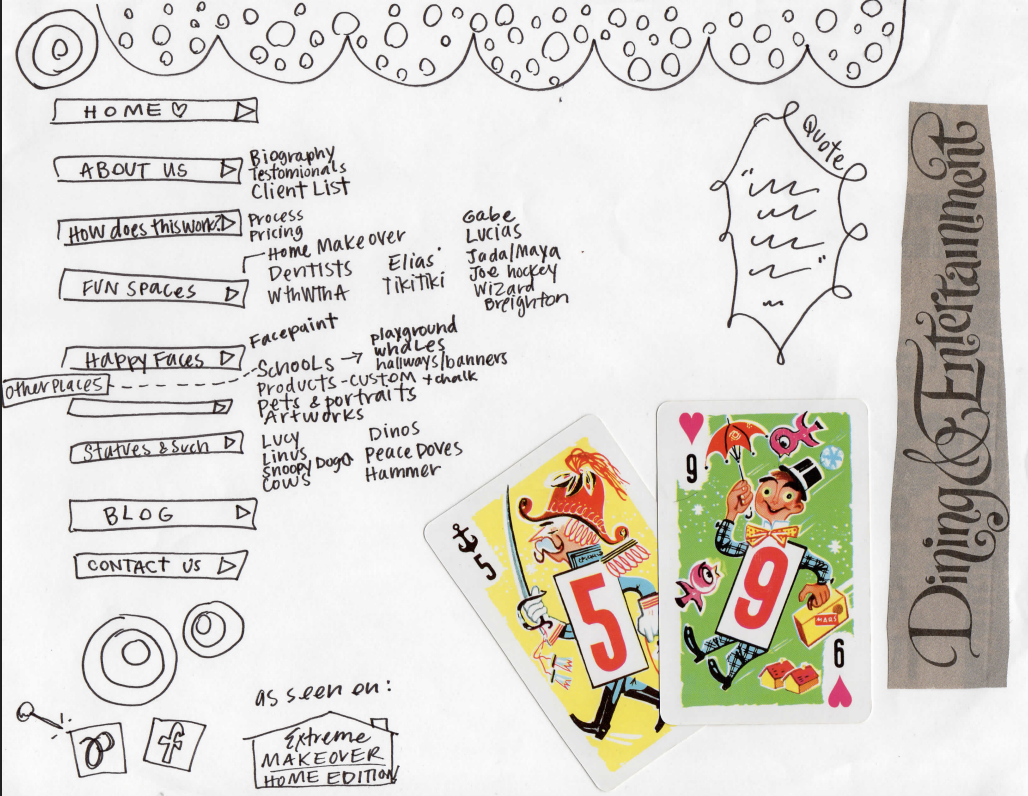 HOME ♡
ABOUT US
Biography
Testomionals
Client List
How does this work?
Process
Pricing
FUN SPACES
Home Makeover
Dentists
WthWthA
Elias
TikiTiki
Gabe
Lucias
Jada/Maya
Joe hockey
Wizard
Breighton
Happy Faces
Facepaint
Schools → playground
whales
hallways/banners
Products - custom + chalk
Pets & portraits
Artworks
Other Places
Statues & Such
Lucy
Linus
Snoopy Dogg
Cows
Dinos
Peace Doves
Hammer
BLOG
CONTACT US
as seen on:
Extreme
MAKEOVER
HOME EDITION
QUOTE
Dining & Entertainment
5
5
9
9
MARS
9